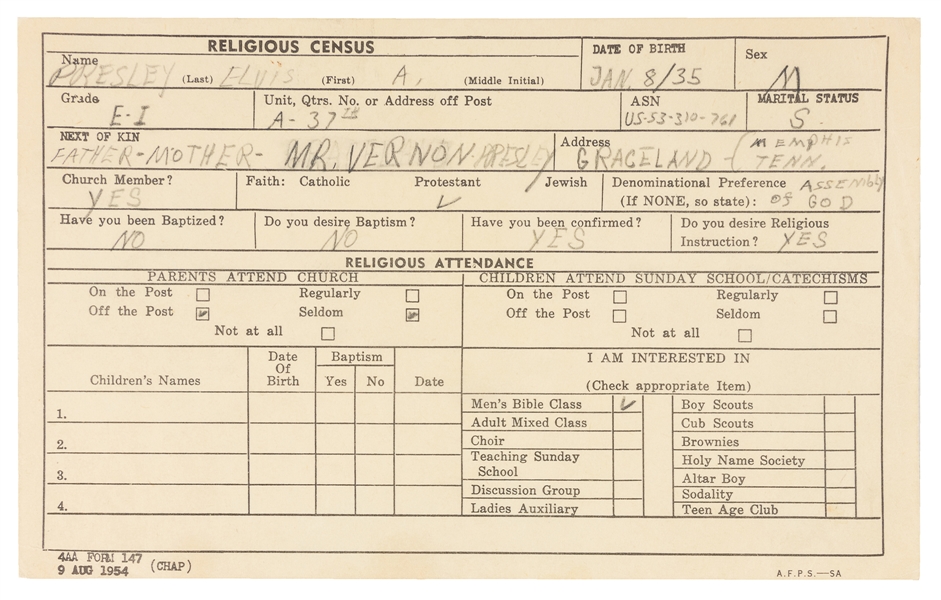 RELIGIOUS CENSUS
Name PRESLEY (Last) ELVIS (First) A. (Middle Initial)
DATE OF BIRTH
JAN. 8/35
Sex
M
Grade
E-1
Unit, Qtrs. No. or Address off Post
A-37TH
ASN
US-53-310-761
MARITAL STATUS
S
NEXT OF KIN
FATHER-MOTHER- MR. VERNON PRESLEY
Address
GRACELAND - (MEMPHIS
TENN.
Church Member?
YES
Faith: Catholic Protestant ✓ Jewish
Denominational Preference ASSEMBLY
(If NONE, so state): OF GOD
Have you been Baptized?
NO
Do you desire Baptism?
NO
Have you been confirmed?
YES
Do you desire Religious
Instruction? YES
RELIGIOUS ATTENDANCE
PARENTS ATTEND CHURCH
On the Post Regularly
Off the Post Seldom
Not at all
CHILDREN ATTEND SUNDAY SCHOOL/CATECHISMS
On the Post Regularly
Off the Post Seldom
Not at all
Children's Names
Date
Of
Birth
Baptism
Yes No
Date
1.
2.
3.
4.
I AM INTERESTED IN
(Check appropriate Item)
Men's Bible Class ✓ Boy Scouts
Adult Mixed Class Cub Scouts
Choir Brownies
Teaching Sunday Holy Name Society
School Altar Boy
Discussion Group Sodality
Ladies Auxiliary Teen Age Club
4AA FORM 147
9 AUG 1954 (CHAP)
A.F.P.S.—SA